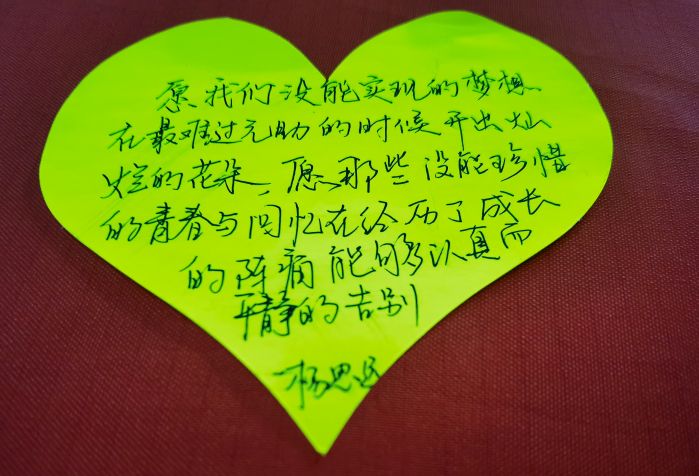 愿我们没能实现的梦想
在最难过无助的时候开出灿
烂的花朵，愿那些没能珍惜
的青春与回忆在经历了成长
的阵痛能够认真而
平静的告别
杨思